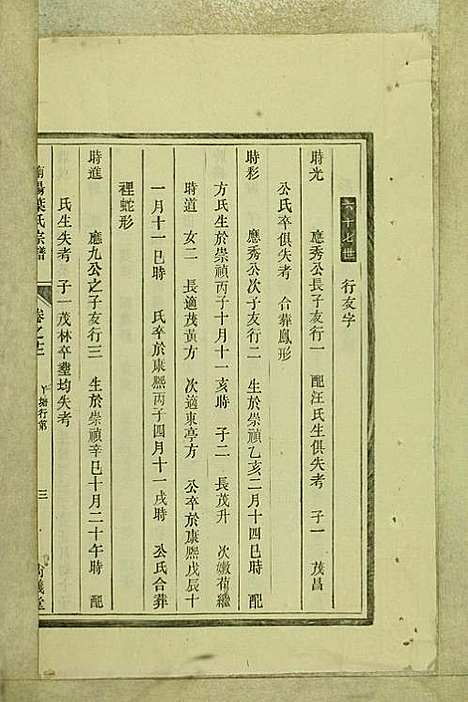 六十七世　行友字
時光　應秀公長子友行一　配汪氏生俱失考　子一　茂昌
公氏卒俱失考　合葬鳳形
時彩　應秀公次子友行二　生於崇禎乙亥二月十四巳時　配
方氏生於崇禎丙子十月十一亥時　子二　長茂升　次嫩　繼
時道　女二　長適茂黃方　次適東亭方　公卒於康熙戊辰十
一月十一巳時　氏卒於康熙丙子四月十一戌時　公氏合葬
裡蛇形
時進　應九公之子友行三　生於崇禎辛巳十月二十午時　配
氏生失考　子一茂林卒塟均失考
南陽葉氏宗譜　卷之　行第　三　義堂